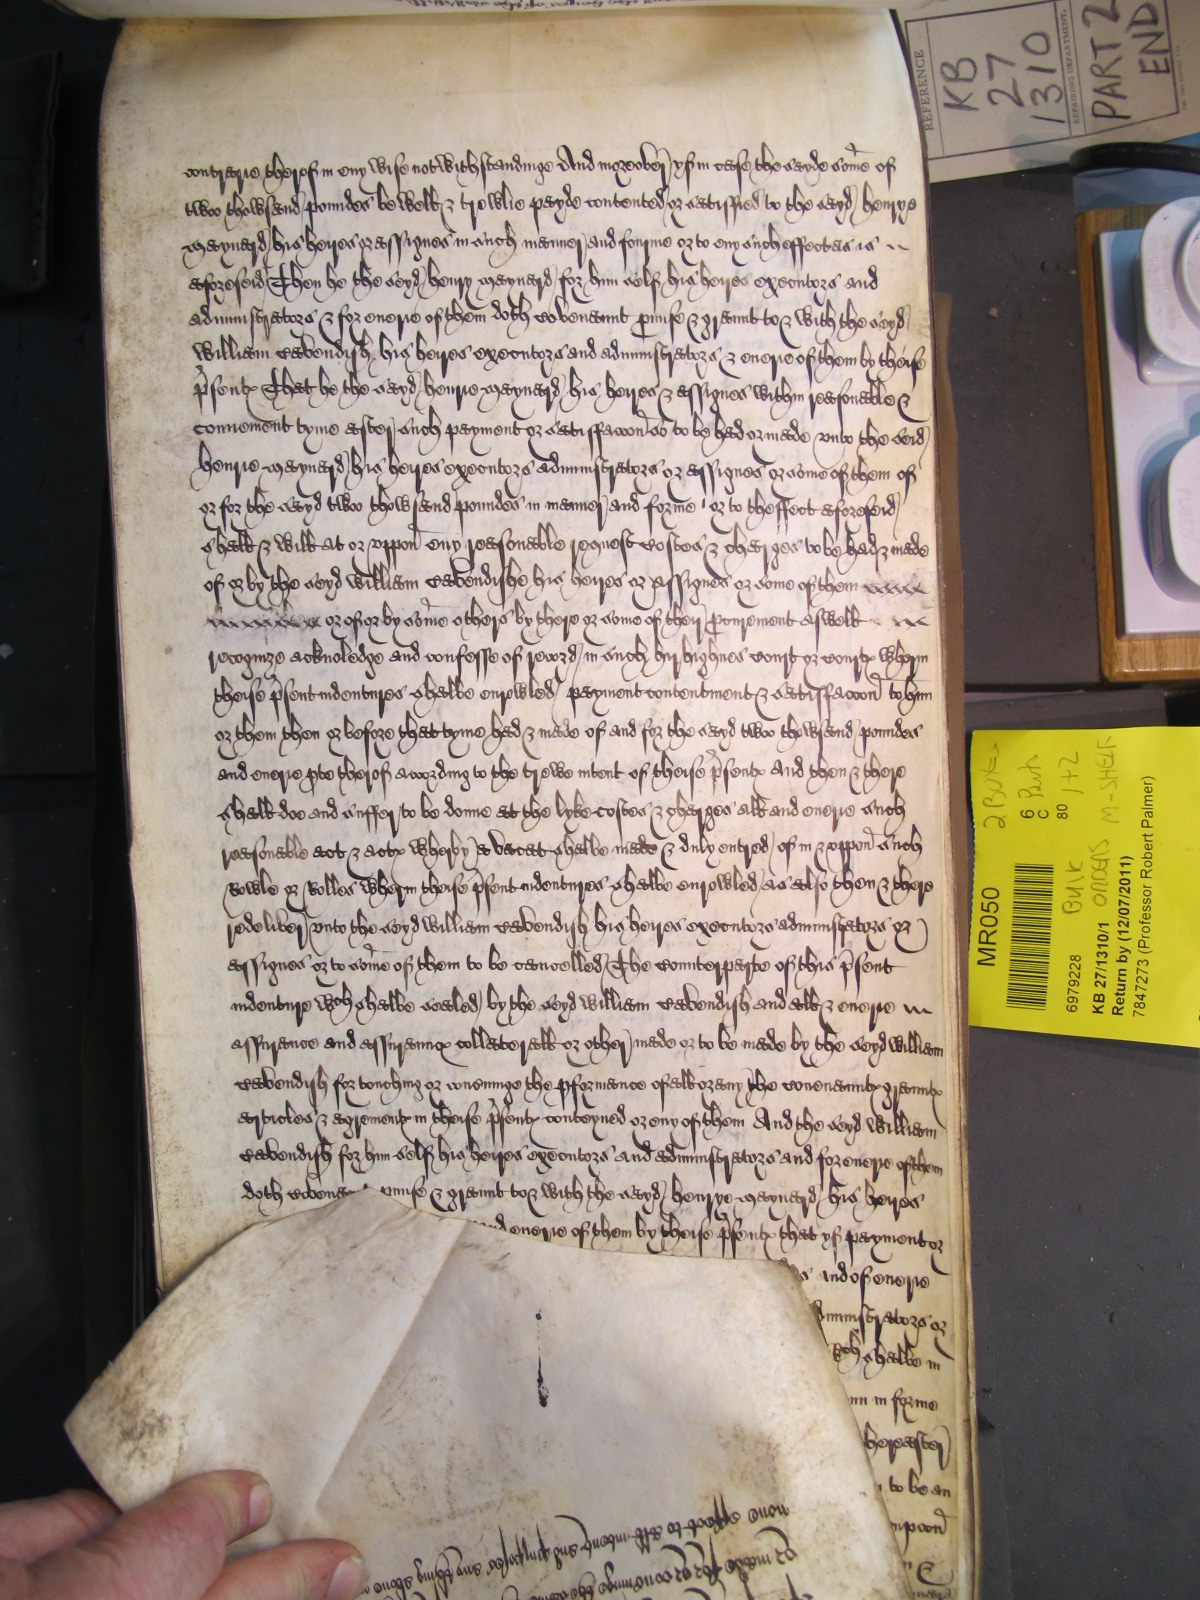 contrarie therof in eny wise notwithstandinge And moreover yf in case the sayde some of
twoo thowsand poundes be well & trewlie payde contented or satisfied to the sayd henrye
Maynard his heires or assignes in such manner and fourme or to eny such effect as is
aforeseid Then he the seyd henry Maynard for him self his heires executors and
administrators & for euerie of them doth covenaunt pmise & graunt to & with the seyd
William Cavendish his heires executors and administrators & euerie of them by theise
psentx That he the sayd henrie Maynard his heires & assignes within reasonable &
convenient tyme after such payment or satisfaccon so to be had or made unto the seid
henrie Maynard his heires executors administrators or assignes or some of them of
or for the sayd twoo thowsand poundes in manner and forme or to theffect aforeseid
shall & will at or uppon eny reasonable request costes & charges to be had & made
of or by the seyd William Cavendishe his heires or assignes or some of them
or of or by some others by there or some of their pcurement aswell
recognize acknoledge and confesse of record in such hir highnes court or courtx wherin
theise psent indentures shalbe enrowled payment contentment & satisfaccon to him
or them then or before that tyme had & made of and for the sayd twoo thowsand poundes
and euerie pte therof according to the trewe intent of theise psentx And then & there
shall doe and suffer to be donne at the lyke costes & charges all and euerie such
reasonable act & actx wherby a vacat shalbe made & duly entred of in & uppon such
Rowle or Rolles wherin theise psent indentures shalbe enrowled as also then & there
redeliver unto the seyd William Cavendish his heires executors administrators or
assignes or to some of them to be cancelled The counterparte of this psent
indenture wch shalbe sealed by the seyd William Cavendish and all & euerie
assurance and assurauncx collaterall or other made or to be made by the seyd William
Cavendish for touching or concerninge the pformance of all or any the covenauntx grauntx
articles & agrementx in theise psentx conteyned or eny of them And the seyd William
Cavendish for him self his heires executors and administrators and for euerie of them
doth covena pmise & graunt to & with the sayd henrye Maynard his heires
and euerie of them by theise psentx that yf payment or
and of euerie
administrators or
wch shalbe in
in forme
hereafter
to be an
REFERENCE
KB
27
1310
REPAIRING DEPARTMENT.
PART 2
END
MR050
2 Boxes
6 Parts
C
80 1+2
6979228 Bulk orders M-SHELF
KB 27/1310/1
Return by (12/07/2011)
7847273 (Professor Robert Palmer)